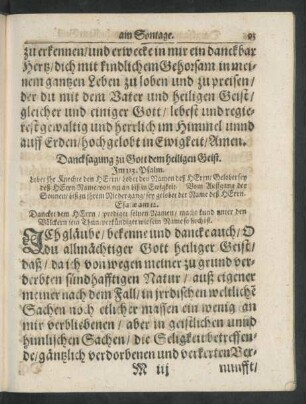 am Sontage.
zu erkennen/und erwecke in mir ein danckbar
Hertz/dich mit kindlichem Gehorsam in mei-
nem gantzen Leben zu loben und zu preisen/
der du mit dem Vater und heiligen Geist/
gleicher und einiger Gott/ lebest und regie-
rest gewaltig und herrlich im Himmel unnd
auff Erden/hochgelobt in Ewigkeit/Amen.
Dancksagung zu Gott dem heiligen Geist.
Im 113. Psalm.
Lobet ihr Knechte den HErrn/ lobet den Namen deß HErrn/ Gelobet sey
deß HErrn Name/von nu an biß in Ewigkeit/ Vom Auffgang der
Sonnen/biß zu ihrem Niedergang/sey gelobet der Name deß HErrn.
Esa. am 12.
Dancket dem HErrn/ prediget seinen Namen/ macht kund unter den
Völckern sein Thun/verkündiget wie sein Name so hoch ist.
ICh gläube/bekenne und dancke auch/O
du allmächtiger Gott heiliger Geist/
daß/da ich von wegen meiner zu grund ver-
derbten sündhafftigen Natur/ auß eigener
meiner nach dem Fall/in jrrdischen weltlichē
Sachen noch etlicher massen ein wenig an
mir verbliebenen/ aber in geistlichen unnd
himlischen Sachen/ die Seligkeit betreffen-
de/gäntzlich verdorbenen und verkerten Ver-
M iij
nunfft/